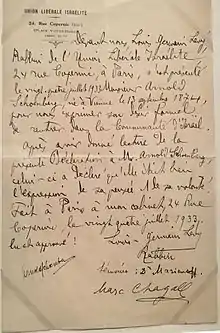 UNION LIBÉRALE ISRAÉLITE
24, Rue Copernic
Devant nous Louis Germain Lévy
Rabbin de l'Union Libérale Israélite
24 rue Copernic, à Paris, s'est présenté
le vingt quatre juillet 1933 Monsieur Arnold
Schoenberg, né à Vienne le 13 septembre 1874,
pour nous exprimer son désir formel
de rentrer dans la Communauté d'Israël.
Après avoir donné lecture de la
présente Déclaration à Mr Arnold Schoenberg
celui-ci a déclaré qu'elle était bien
l'expression de sa pensée et de sa volonté.
Fait à Paris à mon cabinet 24 Rue
Copernic, le vingt quatre juillet 1933.
Lu et approuvé: Louis-Germain Lévy
Rabbin
Témoins: Dr Marianoff
Marc Chagall